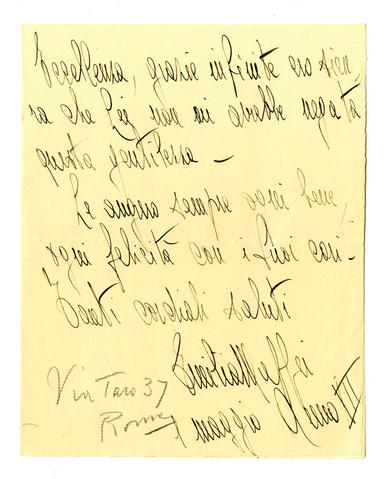 Eccellenza, grazie infinite ero sicu-
ra che Lei non mi avrebbe negata
questa gentilezza -
Le auguro sempre ogni bene,
ogni felicità con i suoi cari -
Tanti cordiali saluti
Emilia Maffei
maggio Anno VII
Via Taro 37
Roma